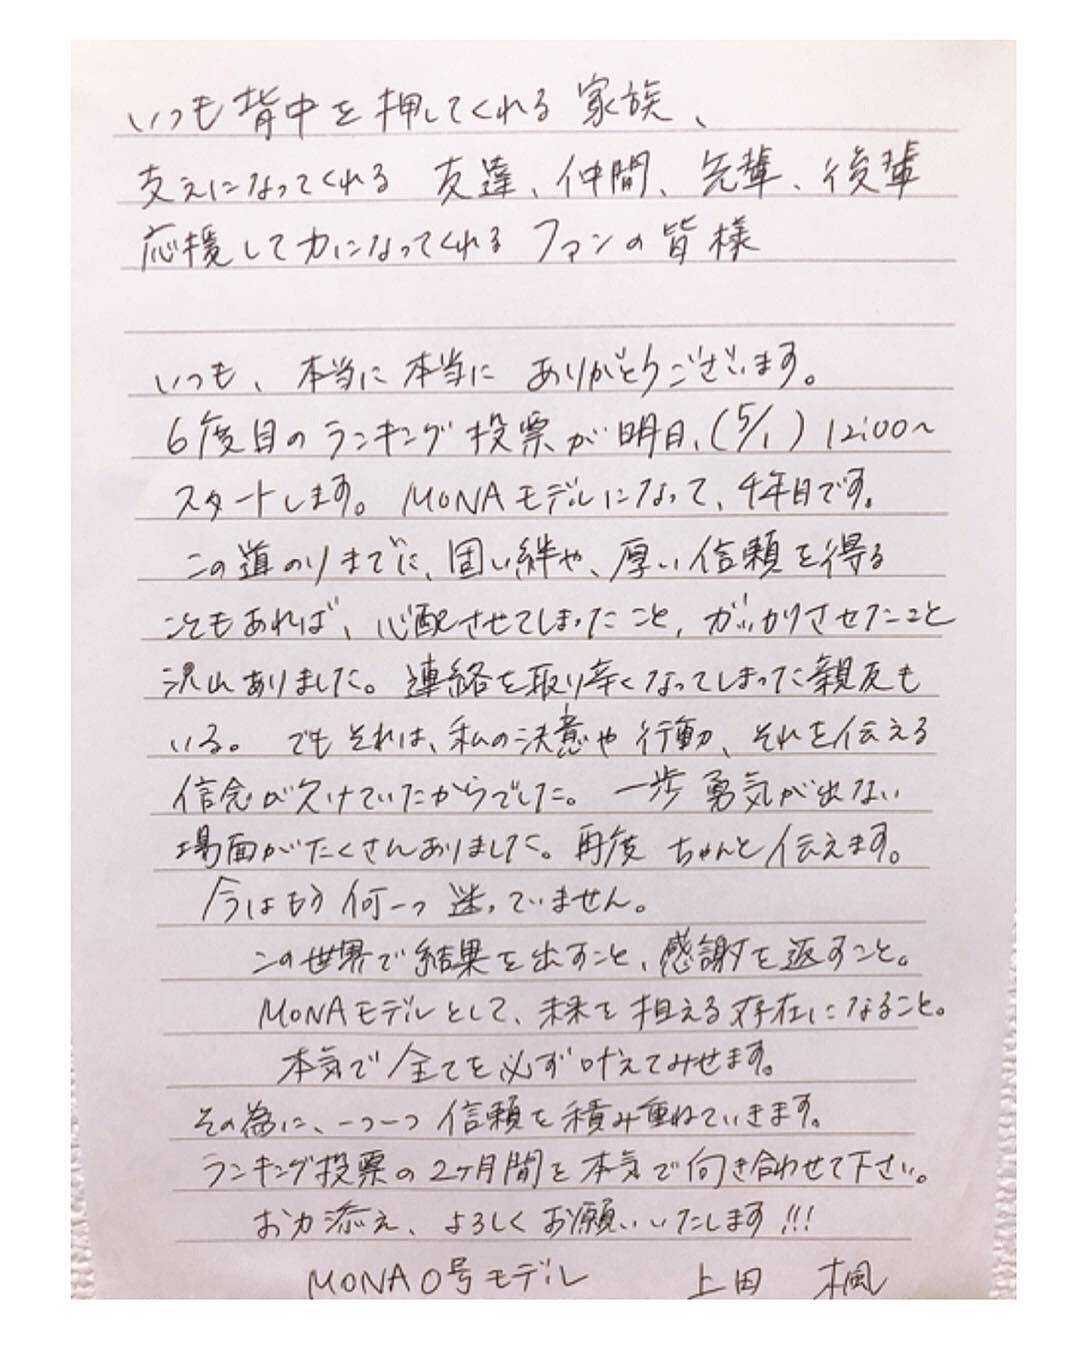 いつも背中を押してくれる家族、
支えになってくれる 友達、仲間、先輩、後輩
応援して力になってくれる ファンの皆様
いつも、本当に本当に ありがとうございます。
6度目のランキング投票が明日、(5/1) 12:00〜
スタートします。 MONAモデルになって、4年目です。
この道のりまでに、固い絆や、厚い信頼を得る
こともあれば、心配させてしまったこと、がっかりさせたこと
沢山ありました。連絡を取り辛くなってしまった親友も
いる。 でもそれは、私の決意や行動、それを伝える
信念が欠けていたからでした。 一歩勇気が出ない
場面がたくさんありました。再度 ちゃんと伝えます。
今はもう何一つ迷っていません。
この世界で結果を出すこと、感謝を返すこと。
MONAモデルとして、未来を担える存在になること。
本気で全てを必ず叶えてみせます。
その為に、一つ一つ信頼を積み重ねていきます。
ランキング投票の2ヶ月間を本気で向き合わせて下さい。
お力添え、よろしくお願いいたします!!!
MONA0号モデル 上田 楓